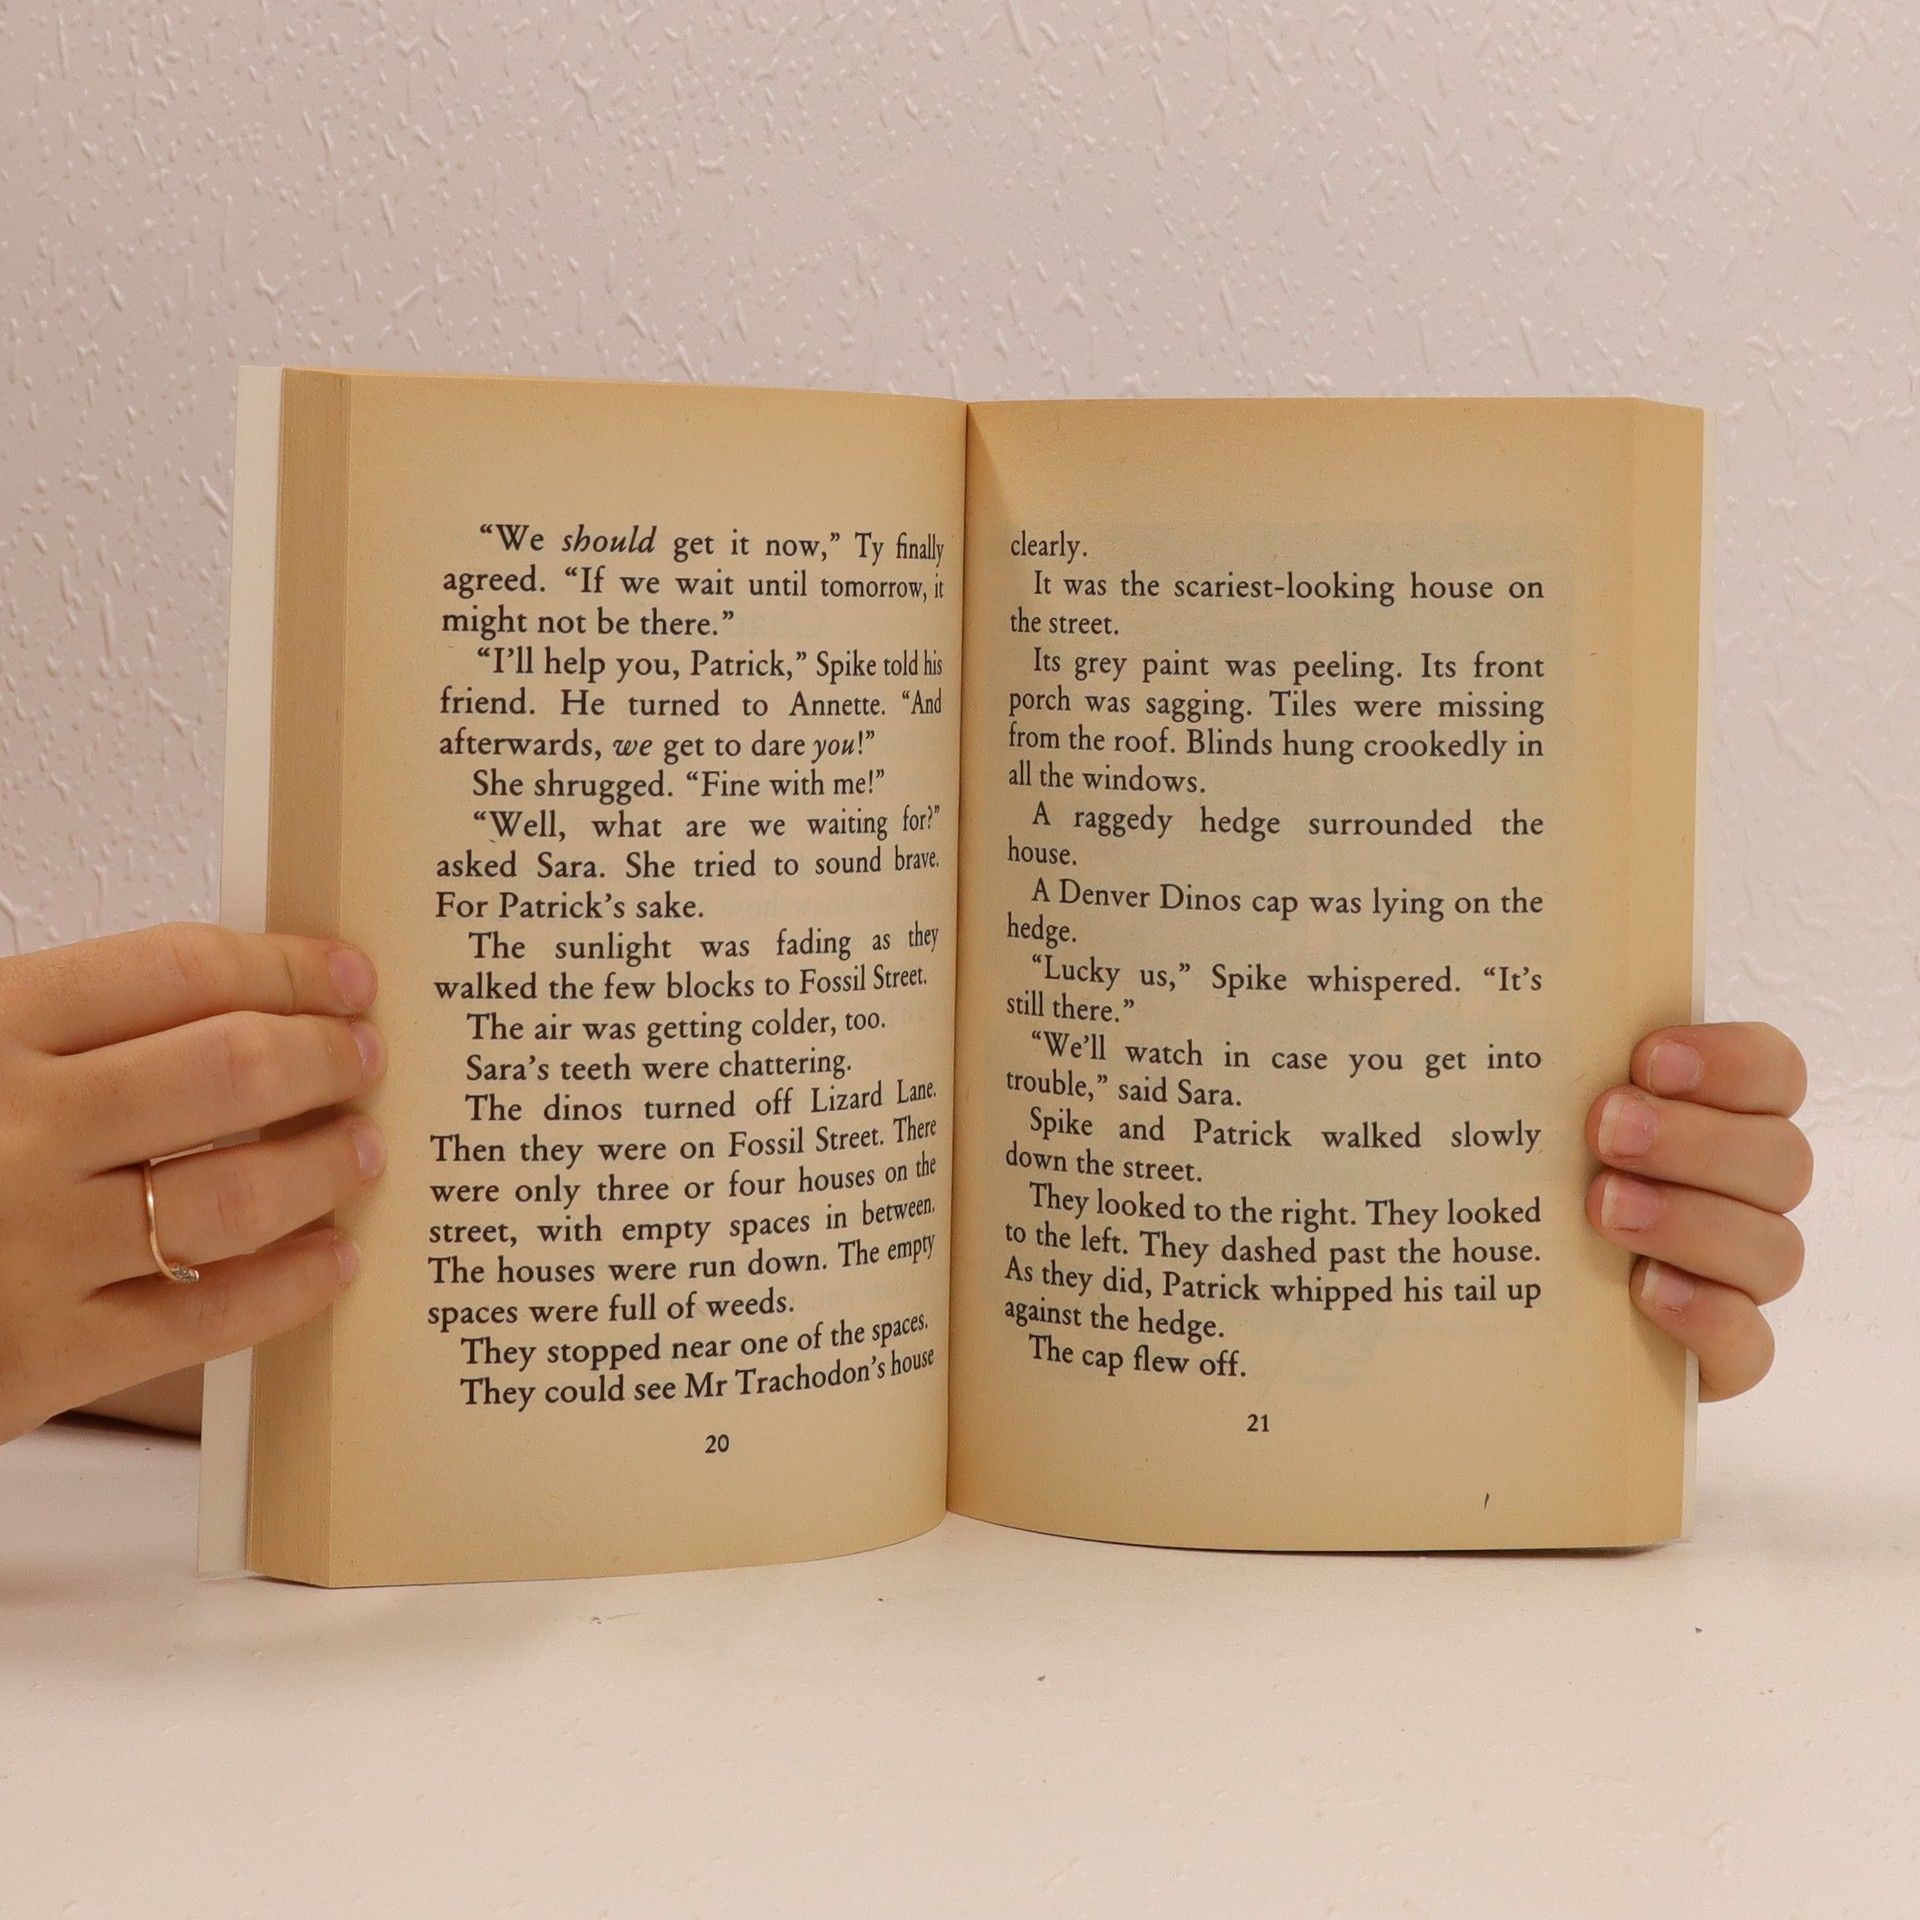 “We should get it now,” Ty finally
agreed. “If we wait until tomorrow, it
might not be there.”
“I’ll help you, Patrick,” Spike told his
friend. He turned to Annette. “And
afterwards, we get to dare you!”
She shrugged. “Fine with me!”
“Well, what are we waiting for?”
asked Sara. She tried to sound brave.
For Patrick’s sake.
The sunlight was fading as they
walked the few blocks to Fossil Street.
The air was getting colder, too.
Sara’s teeth were chattering.
The dinos turned off Lizard Lane.
Then they were on Fossil Street. There
were only three or four houses on the
street, with empty spaces in between.
The houses were run down. The empty
spaces were full of weeds.
They stopped near one of the spaces.
They could see Mr Trachodon’s house
20
clearly.
It was the scariest-looking house on
the street.
Its grey paint was peeling. Its front
porch was sagging. Tiles were missing
from the roof. Blinds hung crookedly in
all the windows.
A raggedy hedge surrounded the
house.
A Denver Dinos cap was lying on the
hedge.
“Lucky us,” Spike whispered. “It’s
still there.”
“We’ll watch in case you get into
trouble,” said Sara.
Spike and Patrick walked slowly
down the street.
They looked to the right. They looked
to the left. They dashed past the house.
As they did, Patrick whipped his tail up
against the hedge.
The cap flew off.
21